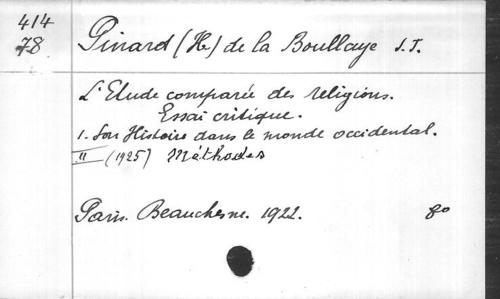 414
78
Pinard (H) de la Boullaye S.J.
L'Etude comparée des religions.
Essai critique.
1. Son Histoire dans le monde occidental.
II (1925) Méthodes
Paris. Beauchesne. 1922. 8o